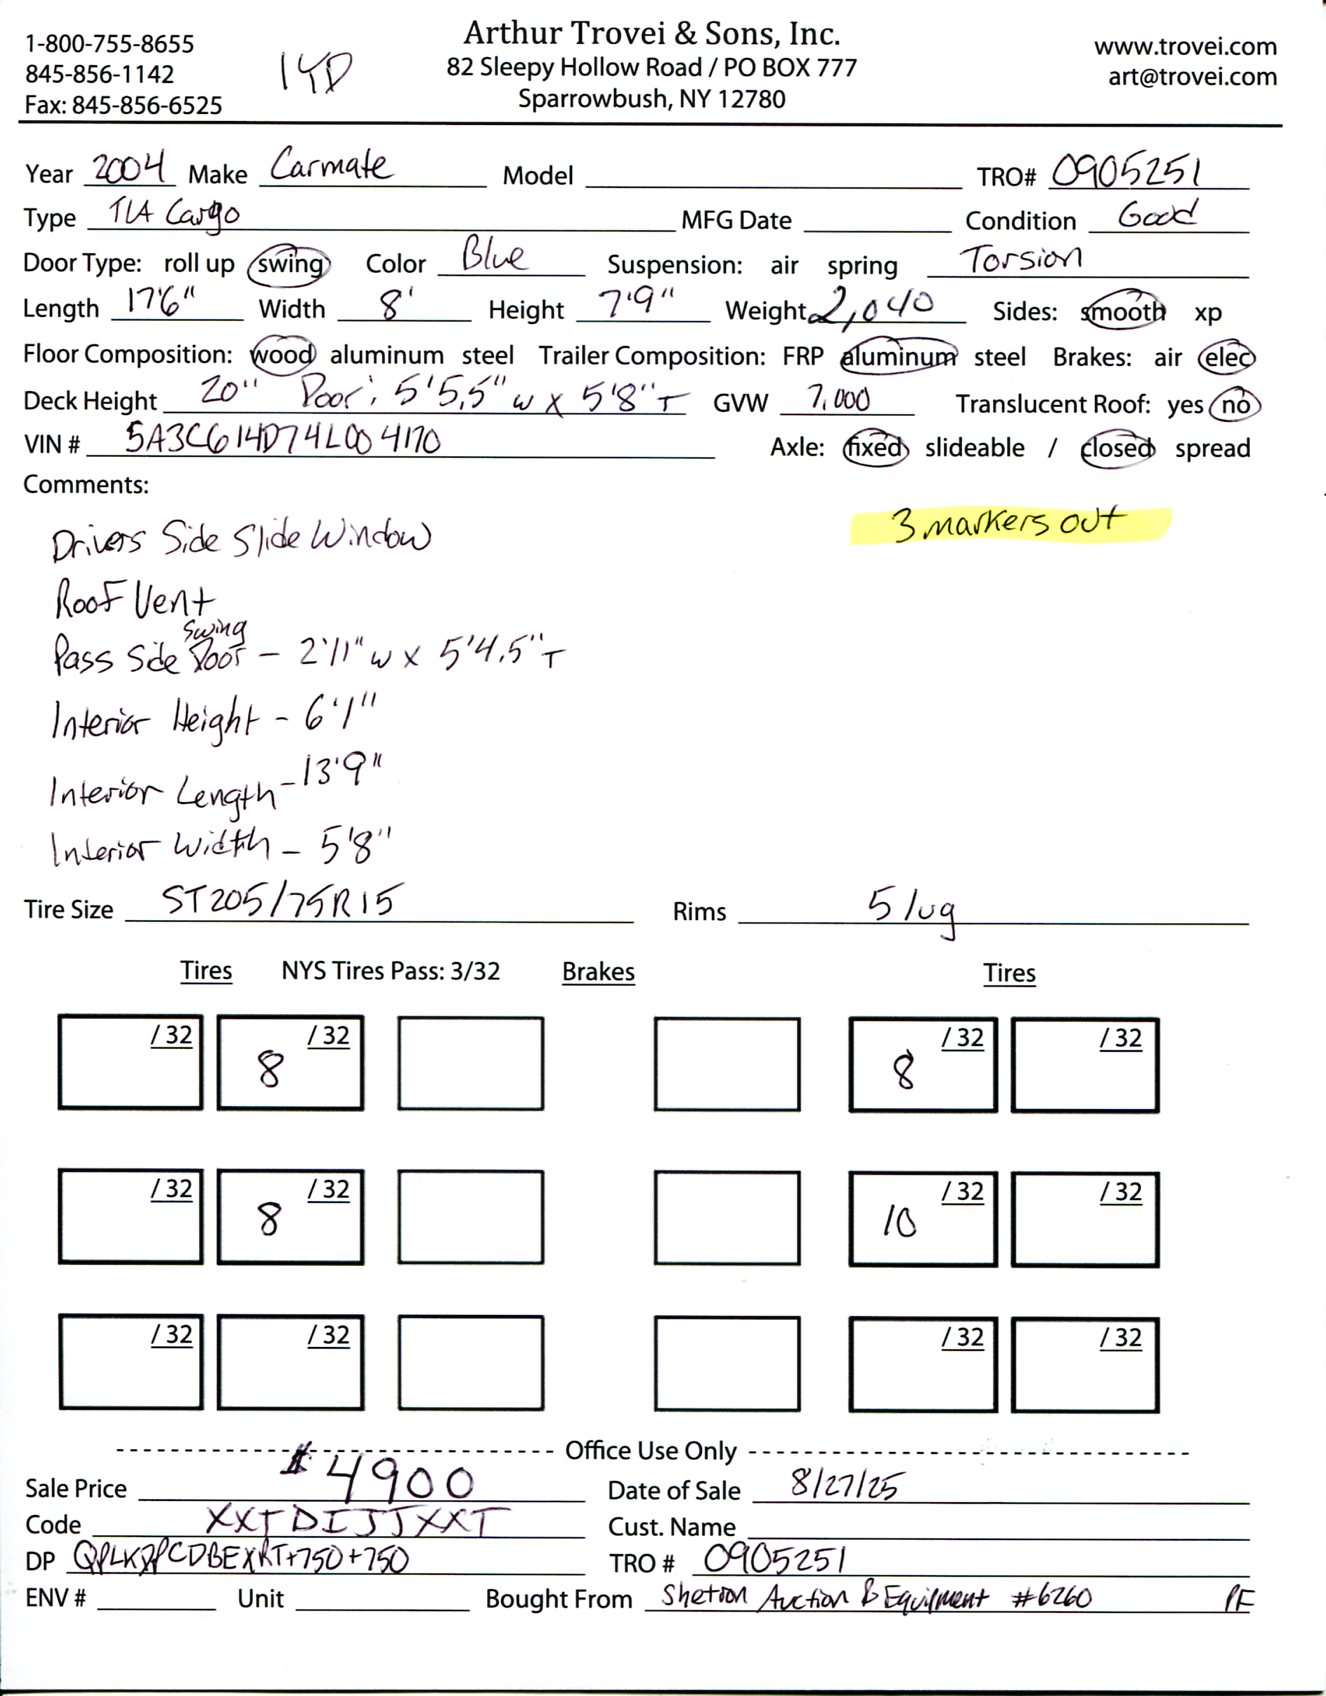 Arthur Trovei & Sons, Inc.
1-800-755-8655 www.trovei.com
845-856-1142 14D 82 Sleepy Hollow Road / PO BOX 777 art@trovei.com
Fax: 845-856-6525 Sparrowbush, NY 12780
Year 2004 Make Carmate Model TRO# 0905251
Type TLA Cargo MFG Date Condition Good
Door Type: roll up swing Color Blue Suspension: air spring Torsion
Length 17'6" Width 8' Height 7'9" Weight 2,040 Sides: smooth xp
Floor Composition: wood aluminum steel Trailer Composition: FRP aluminum steel Brakes: air elec
Deck Height 20" Door: 5'5.5" w x 5'8" T GVW 7,000 Translucent Roof: yes no
VIN # 5A3C614D74L004170 Axle: fixed slideable / closed spread
Comments:
3 markers out
Drivers Side Slide Window
Roof Vent
Pass Side Swing Door - 2'11" w x 5'4.5" T
Interior Height - 6'1"
Interior Length - 13'9"
Interior Width - 5'8"
Tire Size ST205/75R15 Rims 5 lug
Tires NYS Tires Pass: 3/32 Brakes Tires
/32 8 /32 8 /32 /32
/32 8 /32 10 /32 /32
/32 /32 /32 /32
Office Use Only
Sale Price $4900 Date of Sale 8/27/25
Code XXTDIJJXXT Cust. Name
DP +750+750 TRO # 0905251
ENV # Unit Bought From Shetron Auction & Equipment #6260 PF